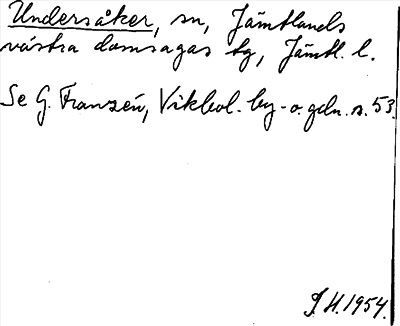 Undersåker, sn, Jämtlands
västra domsagas tg, Jämtl. l.
Se G. Franzén, Vikbol. by- o. gdn. s. 53.
S. H. 1954.